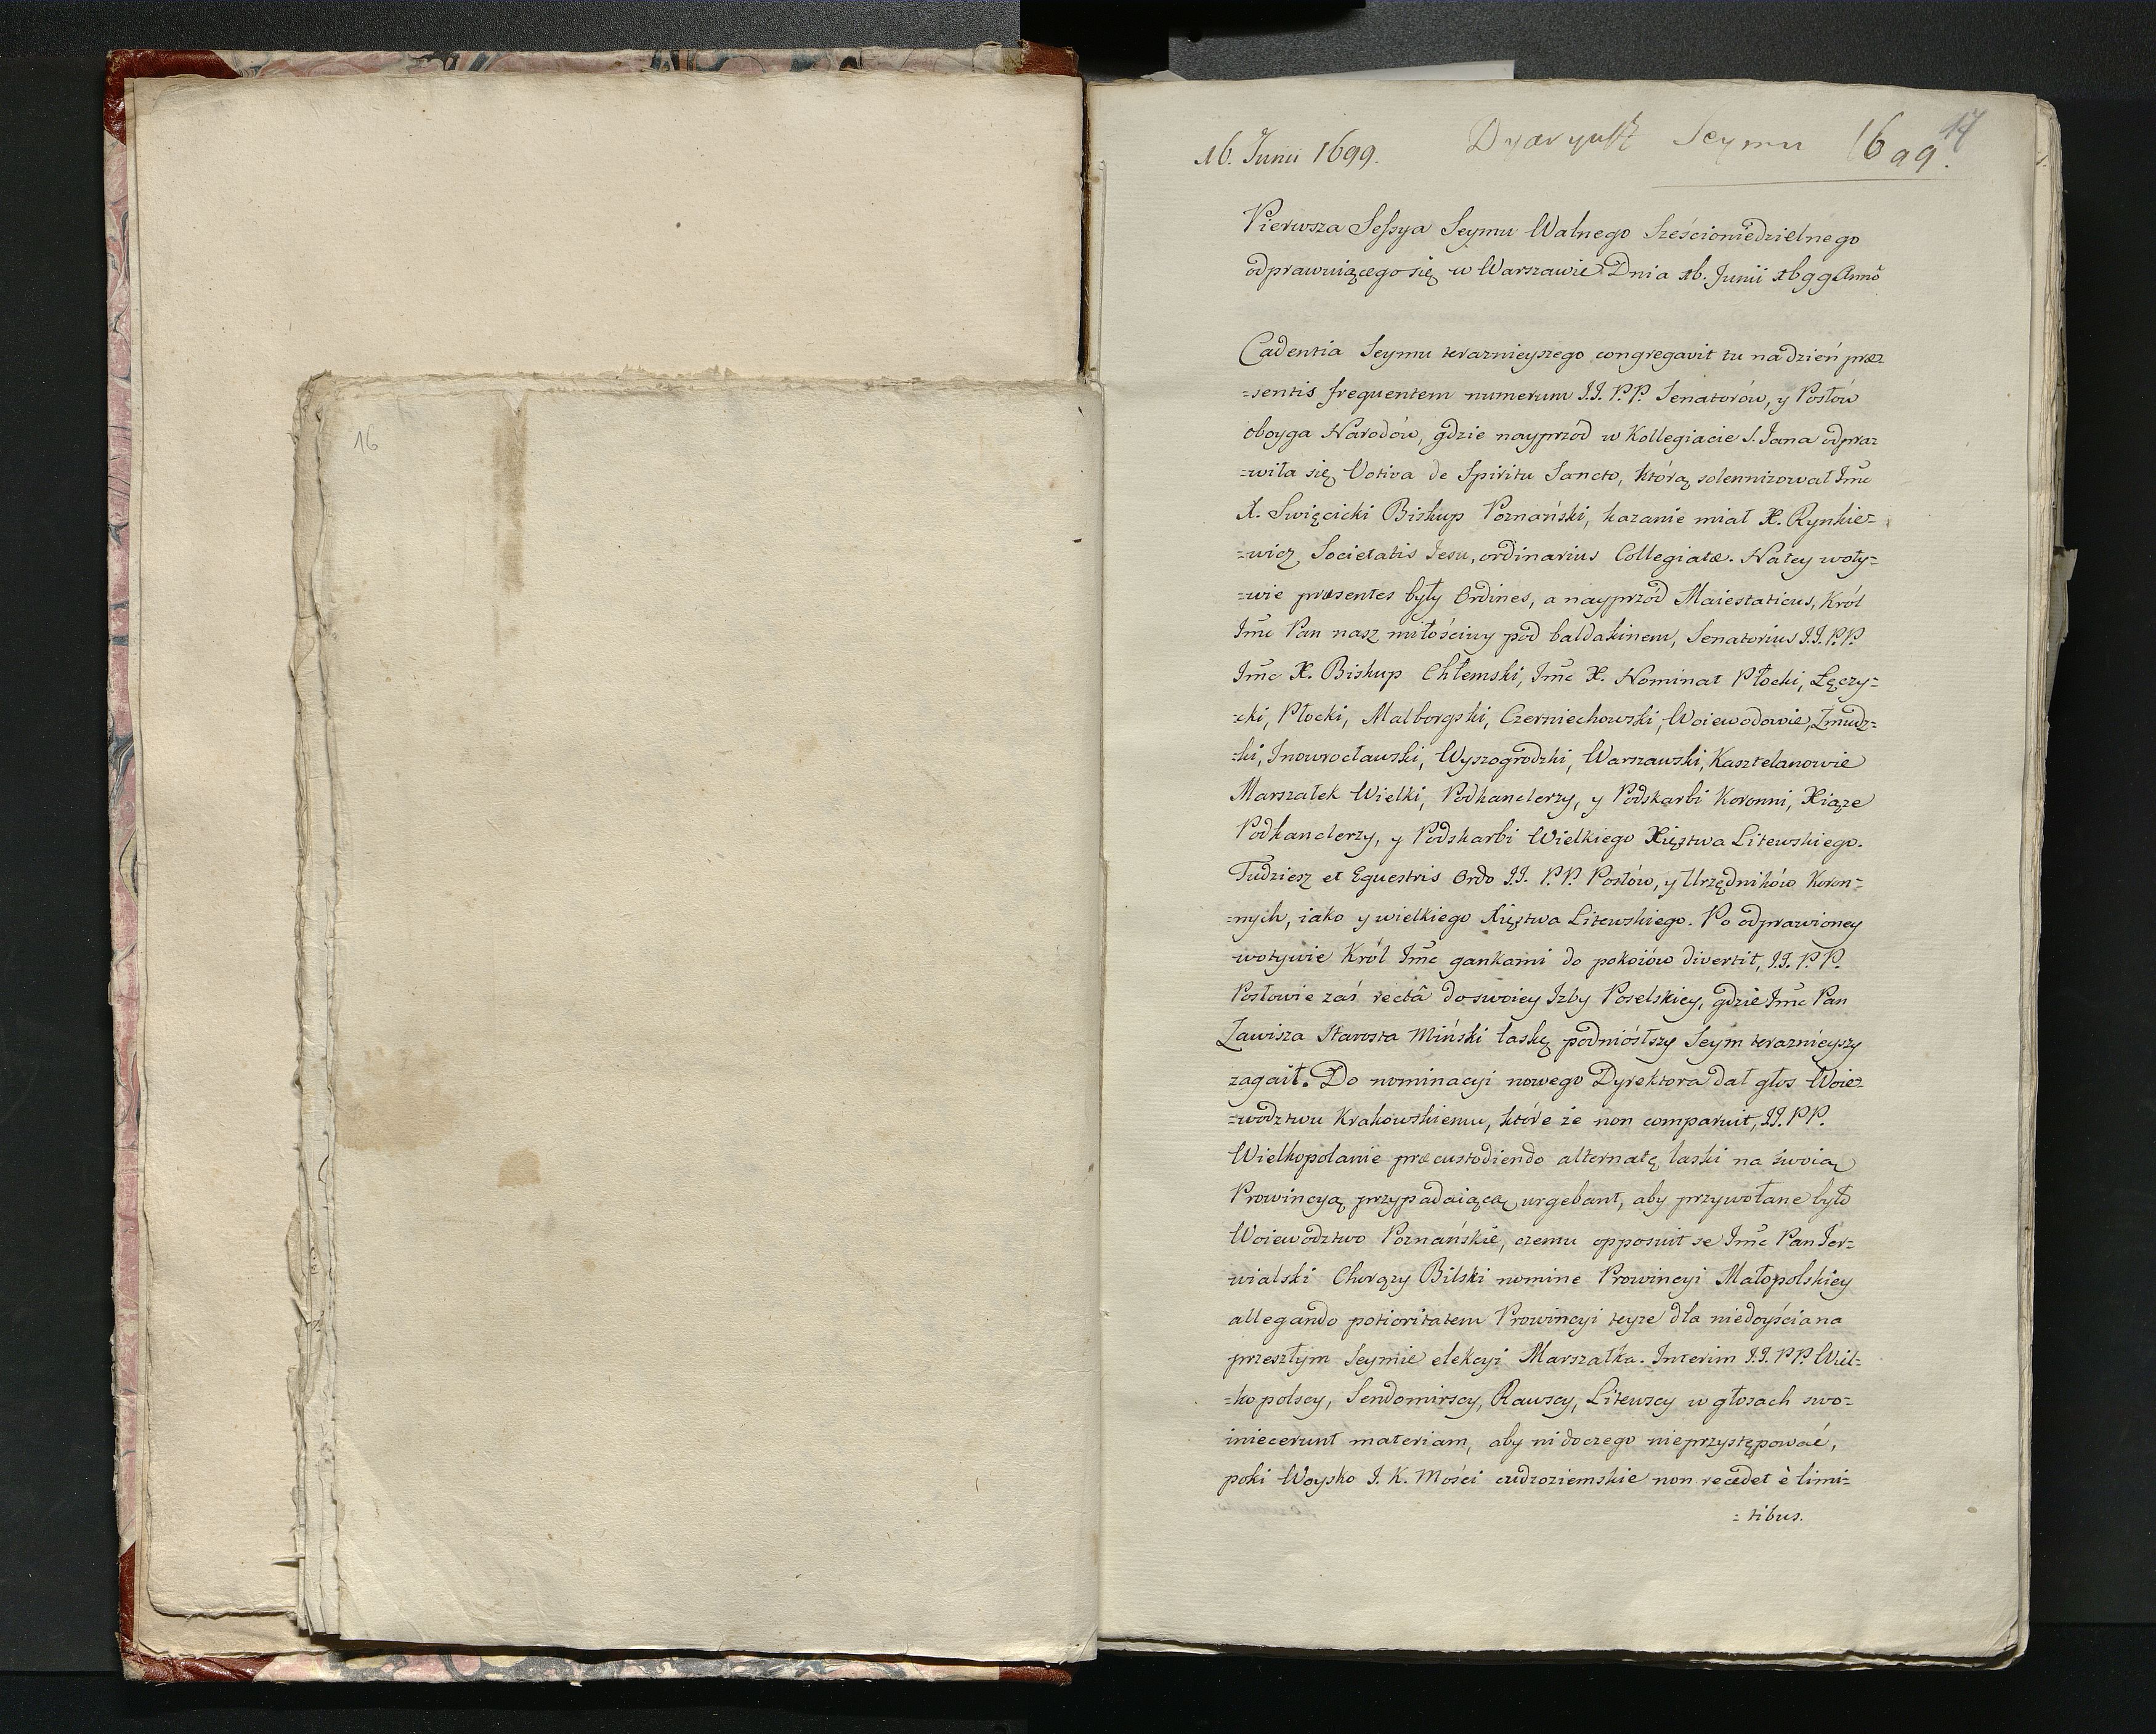 16
16. Junii 1699.
Dyaryusz Seymu 1699.
17
Pierwsza Sessya Seymu Walnego Sześcioniedzielnego
odprawuiącego się w Warszawie Dnia 16. Junii 1699 Annô
Cadentia Seymu teraznieyszego congregavit tu na dzień præ=
=sentis frequentem numerum J.J. P.P. Senatorów, y Posłów
oboyga Narodów, gdzie nayprzód w Kollegiacie S. Jana odpra=
=wiła się Votiva de Spiritu Sancto, którą solennizował Jmc
X. Swięcicki Biskup Poznański, kazanie miał X. Rynkie=
=wicz Societatis Jesu, ordinarius Collegiatæ. Na tey woty=
=wie præsentes były Ordines, a nayprzód Maiestaticus, Król
Jmc Pan nasz miłościwy pod baldakinem, Senatorius J.J. P.P.
Jmc X. Biskup Chłemski, Jmc X. Nominat Płocki, Łęczy=
=cki, Płocki, Malborgski, Czerniechowski, Woiewodowie, Zmudz=
=ki, Inowrocławski, Wyszogrodzki, Warszawski, Kasztelanowie
Marszałek Wielki, Podkanclerzy, y Podskarbi Koronni, Xiąze
Podkanclerzy, y Podskarbi Wielkiego Xięstwa Litewskiego.
Tudziesz et Equestris Ordo J.J. P.P. Posłów, y Urzędników Koron=
=nych, iako y wielkiego Xięstwa Litewskiego. Po odprawioney
wotywie Król Jmc gankami do pokoiów divertit, J.J. P.P.
Posłowie zaś rectâ do swoiey Izby Poselskiey, gdzie Jmc Pan
Zawisza Starosta Miński laskę podniósłszy Seym teraznieyszy
zagaił. Do nominacyi nowego Dyrektora dał głos Woie=
=wództwu Krakowskiemu, które że non comparuit, J.J. P.P.
Wielkopolanie præcustodiendo alternatę laski na swoią
Prowincyą przypadaiącą urgebant, aby przywołane było
Woiewodztwo Poznańskie, czemu opposuit se Jmc Pan Jer=
wialski Chorązy Bilski nomine Prowincyi Małopolskiey
allegando potioritatem Prowincyi teyze dla niedoyścia na
przeszłym Seymie elekcyi Marszałka. Interim J.J. P.P. Wiel=
=kopolscy, Sendomirscy, Rawscy, Litewscy w głosach swo=
iniecerunt materiam, aby ni do czego nie przystępować,
poki Woysko J. K. Mości cudzoziemskie non recedet è limi=
=tibus.